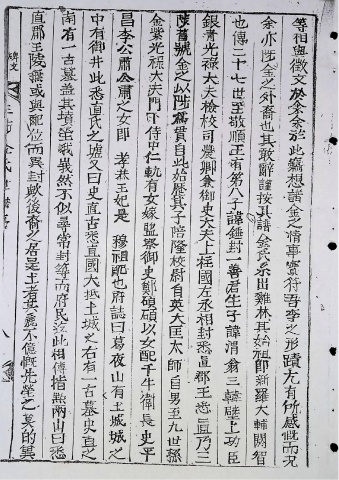 等相與徵文於余余於此竊想諸金之情事實符吾李之形蹟尤有所感慨而況
余亦陟金之外裔也其敢辭謹按其譜金氏系出雞林其始祖卽新羅大輔閼智
也傳二十七世至敬順王有第八子諱錘封一善君生子諱渭翁三韓壁上功臣
銀青光祿大夫檢校司農卿兼御史大夫上柱國左丞相封悉直郡王悉直乃三
陟舊號金之以陟爲貫自此始歷其子陪隆校尉自英大匡太師自男至九世孫
金紫光祿大夫門下侍中仁軌有女嫁監察御史鄭碩碩以女配千牛衛長史平
昌李公肅公肅之女卽 孝恭王妃是 穆祖配也府誌曰葛夜山有土城城之
中有御井此悉直氏之墟又曰史直古悉直國大抵土城之右有一古墓史直之
南有一古墓蓋其墳塋巍峩然不似尋常封等而府民迄此相傳指點兩山曰悉
直郡王陵疑或與配位而異封歟後裔之居是土者其麗不億慨先塋之失的冀
碑文